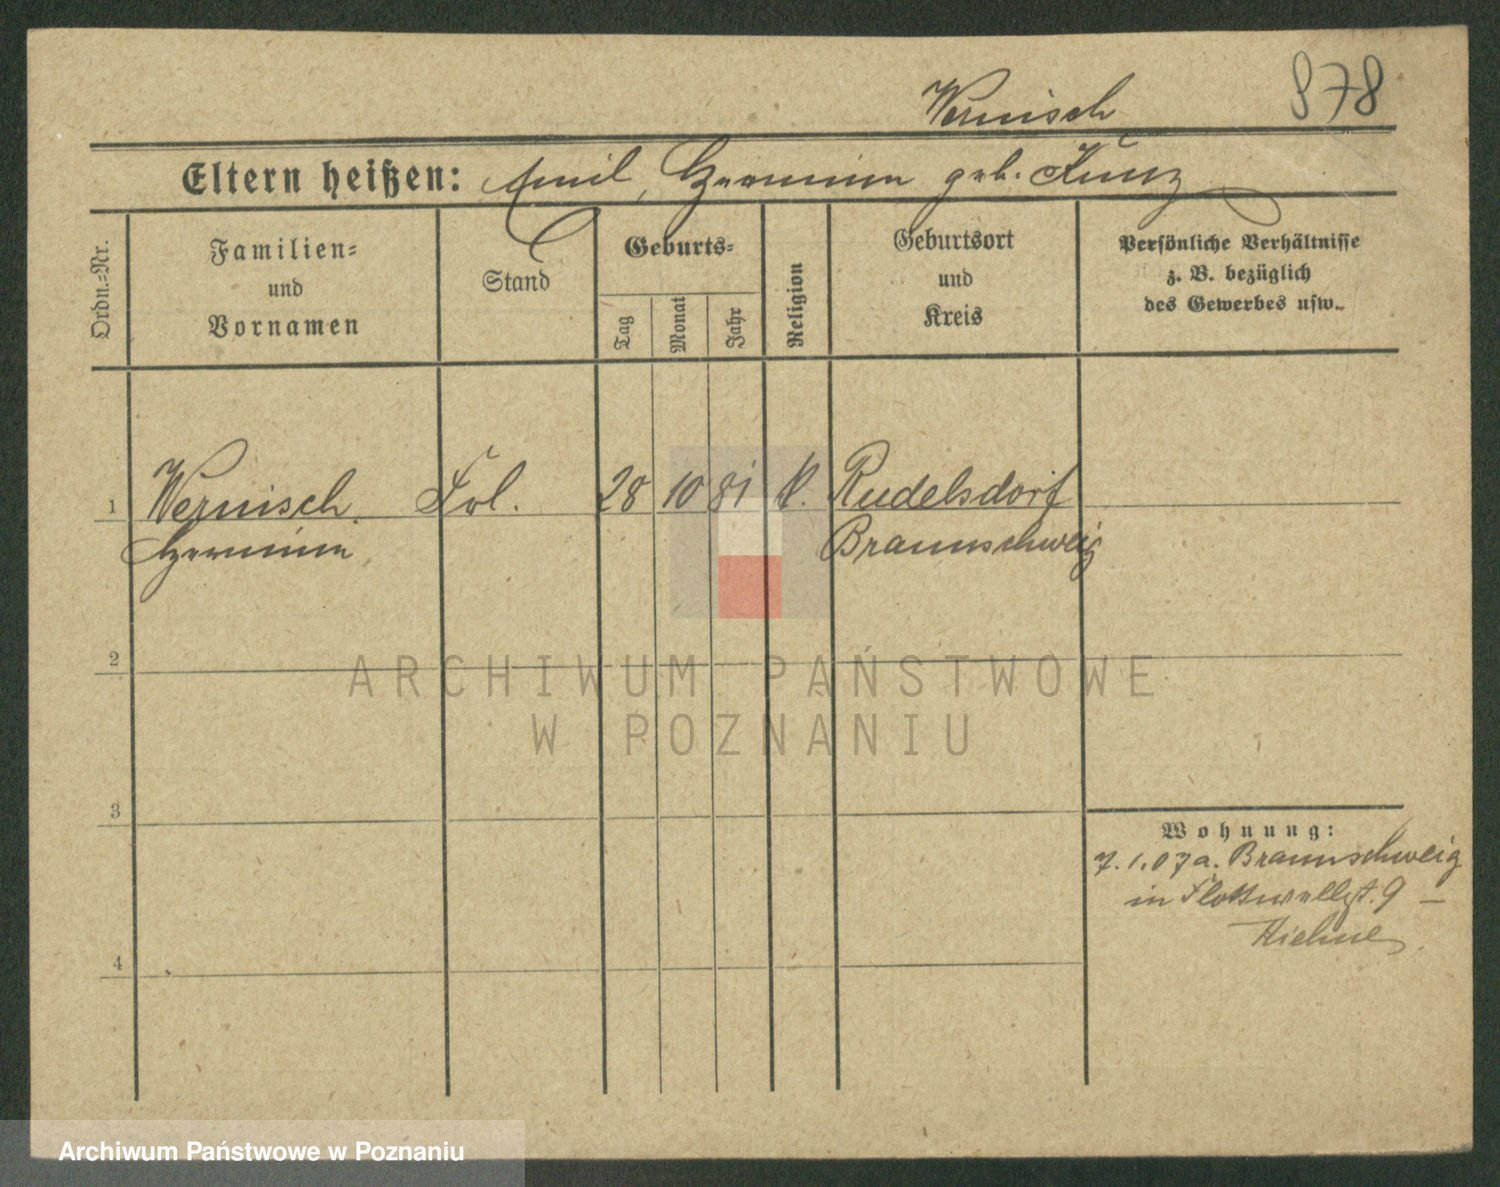 878
Wernisch
Eltern heißen: Emil, Hermine geb. Kunz
Ordn.=Nr.
Familien=
und
Vornamen
Stand
Geburts=
Tag
Monat
Jahr
Religion
Geburtsort
und
Kreis
Persönliche Verhältnisse
z. B. bezüglich
des Gewerbes usw.
1
Wernisch Frl. 28 10 81 k. Rudelsdorf
Hermine Braunschweig
2
3
4
Wohnung:
7.1.07 a. Braunschweig
in Flottwellst. 9 –
ARCHIWUM PAŃSTWOWE
W POZNANIU
Archiwum Państwowe w Poznaniu